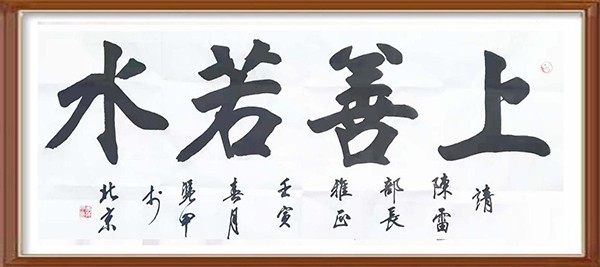 上善若水
請
陳雷
部長
雅正
壬寅
春月
甲
於
北京